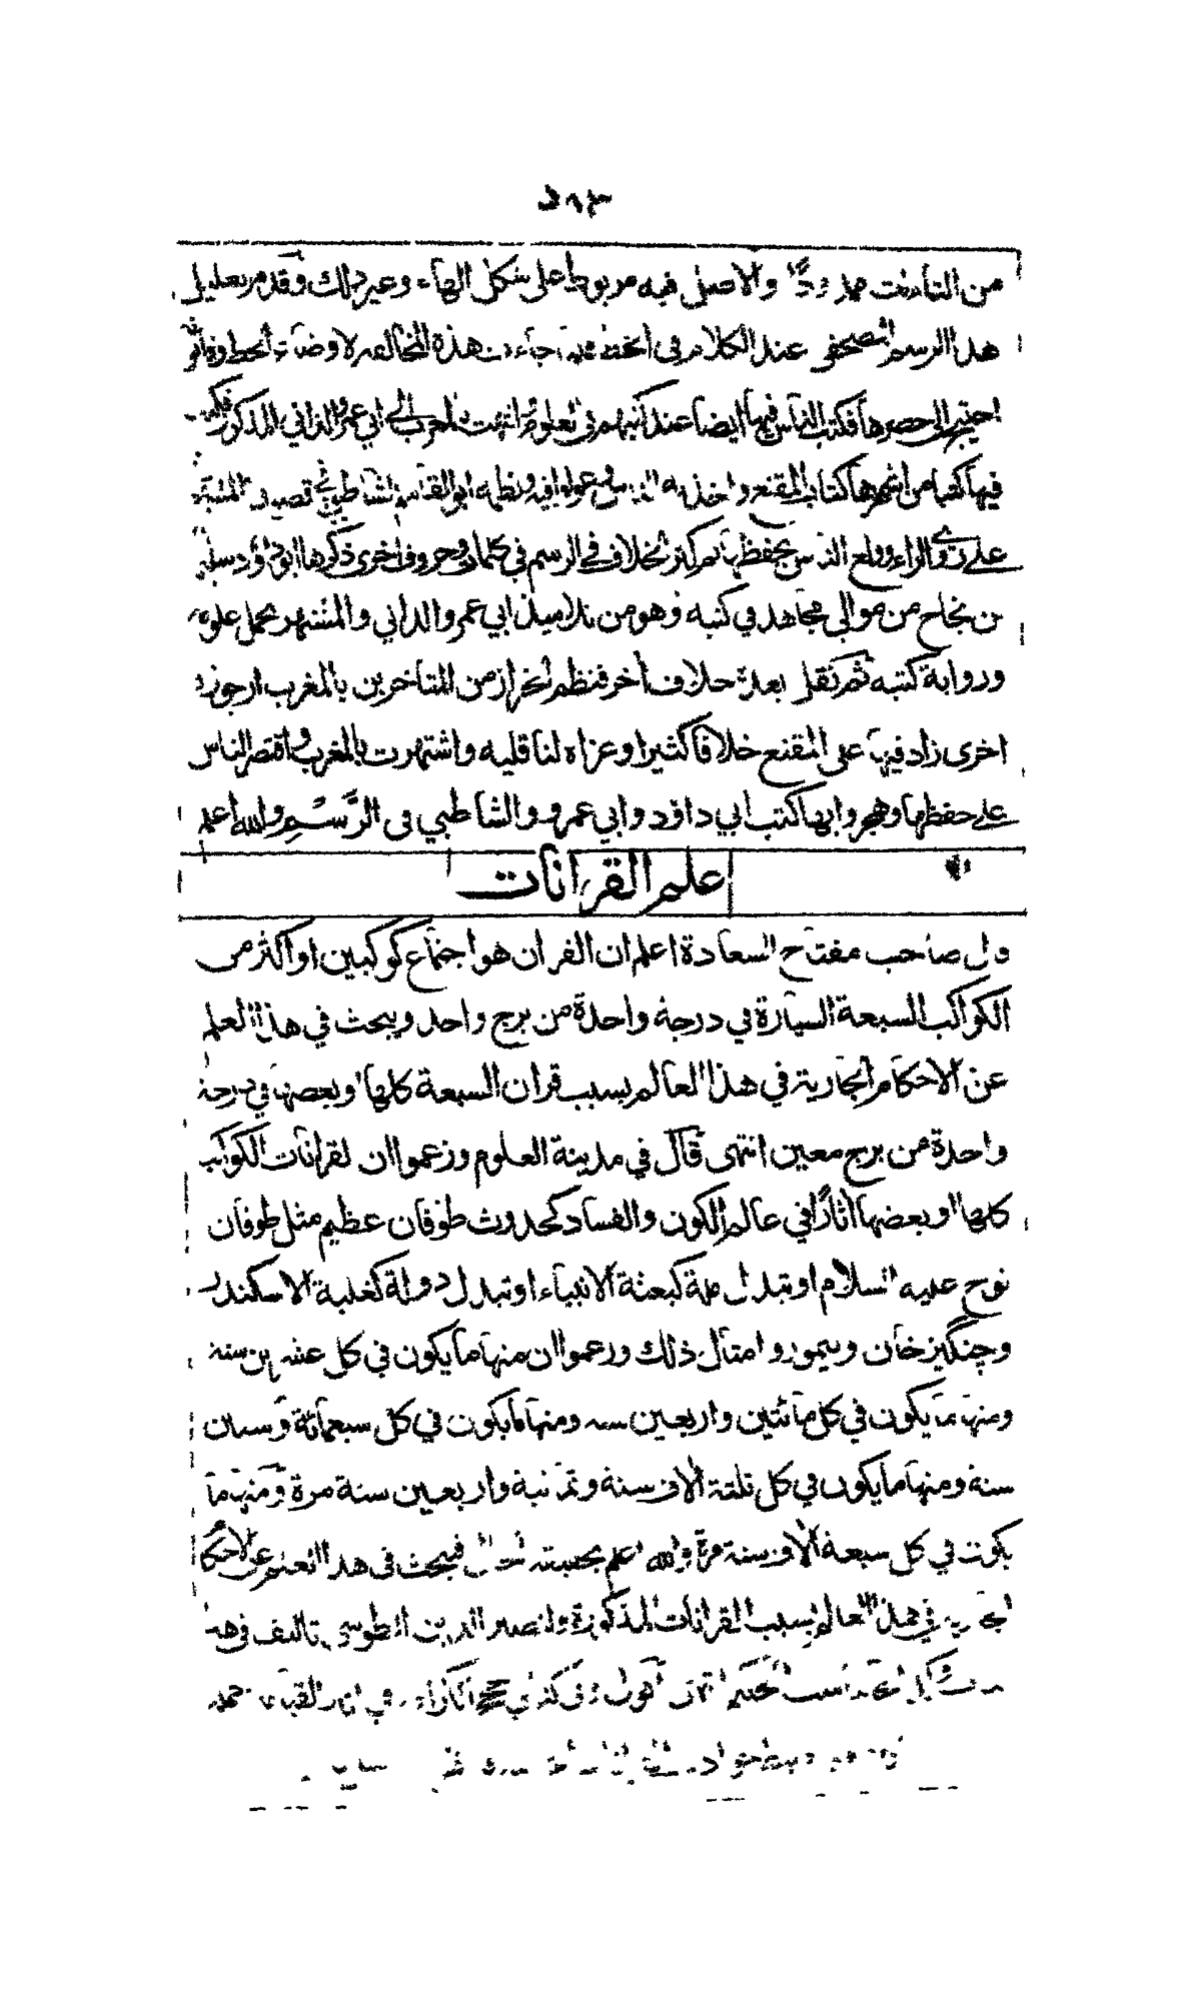 من التاءت ممدودا والاصل فيه مربوط على شكل الهاء وغير ذلك وقد مر تعليل
هذا الرسم المصحفي عند الكلام في الخط فلما جاءت هذه المخالفة لاوضاع الخط وقانونه
احتيج الى حصرها فكتب الناس فيها ايضا عند كتبهم في العلوم وانتهت بالمغرب الى ابي عمرو الداني المذكور فكتب
فيها كتبا من اشهرها كتاب المقنع واخذ به الناس وعولوا عليه ونظمه ابو القاسم الشاطبي في قصيدته المشهورة
على روي الراء وولع الناس بحفظها ثم كثر الخلاف في الرسم في كلمات وحروف اخرى ذكرها ابو داود سليمان
بن نجاح من موالي مجاهد في كتبه وهو من تلاميذ ابي عمرو الداني والمشتهر بحمل علومه
ورواية كتبه ثم نقل بعده خلاف اخر فنظم الخراز من المتاخرين بالمغرب ارجوزة
اخرى زاد فيها على المقنع خلافا كثيرا وعزاه لناقليه واشتهرت بالمغرب واقتصر الناس
على حفظها وهجروا بها كتب ابي داود وابي عمرو والشاطبي في الرسم والله اعلم
علم القرانات
قال صاحب مفتاح السعادة اعلم ان القران هو اجتماع كوكبين او اكثر من
الكواكب السبعة السيارة في درجة واحدة من برج واحد ويبحث في هذا العلم
عن الاحكام الجارية في هذا العالم بسبب قران السبعة كلها او بعضها في درجة
واحدة من برج معين انتهى قال في مدينة العلوم وزعموا ان لقرانات الكواكب
كلها او بعضها اثارا في عالم الكون والفساد كحدوث طوفان عظيم مثل طوفان
نوح عليه السلام او تبدل ملة كبعثة الانبياء او تبدل دولة كغلبة الاسكندر
وچنگيز خان وتيمور وامثال ذلك وزعموا ان منها ما يكون في كل عشرين سنة
ومنها ما يكون في كل مائتين واربعين سنة ومنها ما يكون في كل سبعمائة وستان
سنة ومنها ما يكون في كل ثلثة الاف سنة وثمانية واربعين سنة مرة ومنها ما
يكون في كل سبعة الاف سنة مرة والله اعلم بحقيقة الحال فيبحث في هذا العلم عن الاحكام
الجارية في هذا العالم بسبب القرانات المذكورة ولنصير الدين الطوسي تاليف في هذا
انتهى اقول وفي كتابي حجج الكرامة في اثار القيامة جملة